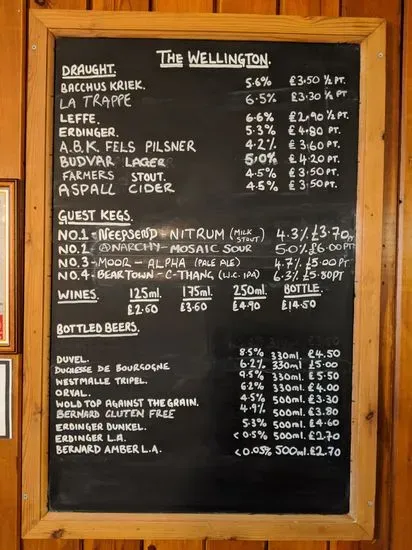 THE WELLINGTON.
DRAUGHT.
BACCHUS KRIEK. 5.6% £3.50 ½ PT.
LA TRAPPE 6.5% £3.30 ½ PT.
LEFFE. 6.6% £2.90 ½ PT.
ERDINGER. 5.3% £4.80 PT.
A.B.K FELS PILSNER 4.2% £3.60 PT.
BUDVAR LAGER 5.0% £4.20 PT.
FARMERS STOUT. 4.5% £3.50 PT.
ASPALL CIDER 4.5% £3.50 PT.
GUEST KEGS.
NO.1-NEEPSEND-NITRUM (MILK STOUT) 4.3% £3.70 PT
NO.2 ANARCHY-MOSAIC SOUR 5.0% £6.00 PT
NO.3-MOOR-ALPHA (PALE ALE) 4.7% £5.00 PT
NO.4-BEARTOWN-C-THANG (W.C. IPA) 6.3% £5.80 PT
WINES. 125ml. 175ml. 250ml. BOTTLE.
£2.60 £3.60 £4.90 £14.50
BOTTLED BEERS.
DUVEL. 8.5% 330ml. £4.50
DUCHESSE DE BOURGOGNE 6.2% 330ml. £5.00
WESTMALLE TRIPEL. 9.5% 330ml. £5.50
ORVAL. 6.2% 330ml. £4.00
WOLD TOP AGAINST THE GRAIN. 4.5% 500ml. £3.30
BERNARD GLUTEN FREE 4.9% 500ml. £3.80
ERDINGER DUNKEL. 5.3% 500ml. £4.60
ERDINGER L.A. <0.5% 500ml. £2.70
BERNARD AMBER L.A. <0.05% 500ml. £2.70